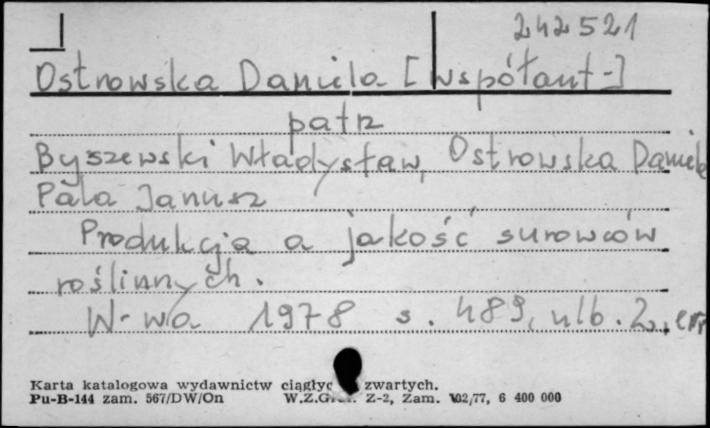 242521
Ostrowska Daniela [współaut-]
patrz
Byszewski Władysław, Ostrowska Daniela
Pala Janusz
Produkcja a jakość surowców
roślinnych.
W-wa 1978 s. 489, nlb. 2, err
Karta katalogowa wydawnictw ciągłyc zwartych.
Pu-B-144 zam. 567/DW/On W.Z.Graf. Z-2, Zam. 102/77, 6 400 000